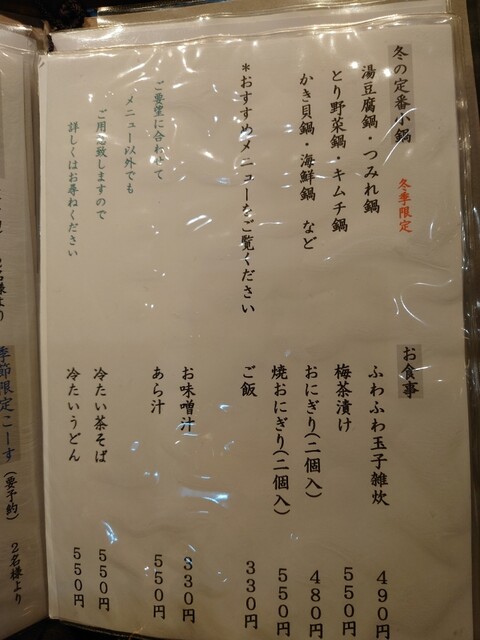 冬の定番小鍋
冬季限定
湯豆腐鍋・つみれ鍋
とり野菜鍋・キムチ鍋
かき貝鍋・海鮮鍋 など
*おすすめメニューをご覧ください
ご要望に合わせて
メニュー以外でも
ご用意致しますので
詳しくはお尋ねください
お食事
ふわふわ玉子雑炊 490円
梅茶漬け 550円
おにぎり(二個入) 480円
焼おにぎり(二個入) 550円
ご飯 330円
お味噌汁 330円
あら汁 550円
冷たい茶そば 550円
冷たいうどん 550円
2名様より
季節限定こーす (要予約) 2名様より